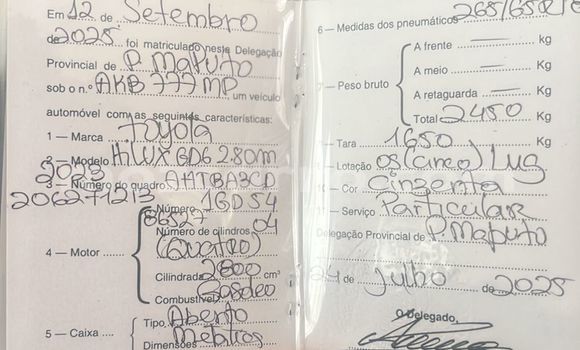 Em 12 de Setembro
de 2025 foi matriculado neste Delegação
Provincial de P. Maputo
sob o n.º AKB 777 MP, um veículo
automóvel com as seguintes características:
1 — Marca Toyota
2 — Modelo HILUX GD6 2.80m
2023
3 — Número do quadro AHTBA3CD
206271213
4 — Motor
Número 1GD54
86527
Número de cilindros 04
(Quatro)
Cilindrada 2800 cm³
Combustível Gasóleo
5 — Caixa
Tipo, Aberto
Dimensões Metros
6 — Medidas dos pneumáticos 265/65R
Peso bruto
A frente kg
A meio kg
A retaguarda kg
Total 2450 Kg
Tara 1650 Kg
Lotação 05 (Cinco) Lug
Cor Cinzenta
Serviço Particular
Delegação Provincial de P. Maputo
24 de Julho de 2025
O Delegado,